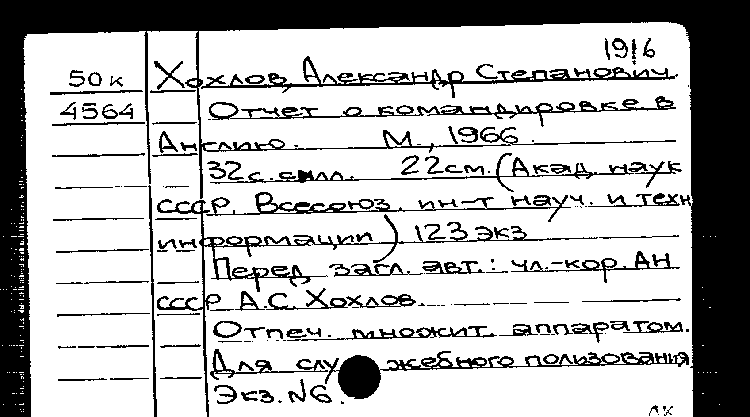 19/6
50к Хохлов, Александр Степанович
4564 Отчет о командировке в
Англию. М., 1966.
32с. с илл. 22см. (Акад. наук
СССР. Всесоюз. ин-т науч. и техн
информации) 123 экз
Перед загл. авт.: чл.-кор. АН
СССР А.С. Хохлов.
Отпеч. множит. аппаратом.
Для служебного пользования
Экз. №6.